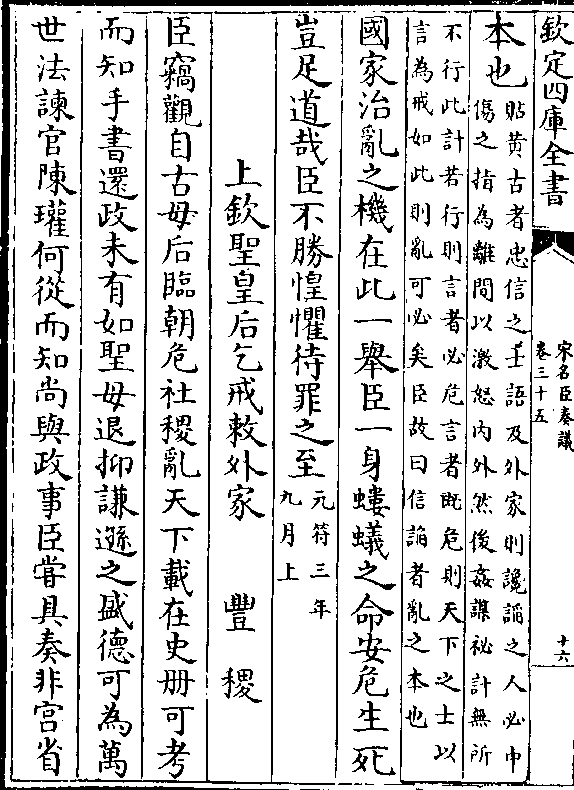 欽定四庫全書
宋名臣奏議
卷三十五
十六
本也
貼黄古者忠信之士語及外家則讒謟之人必中
傷之指為離間以激怒内外然後姦謀祕計無所
不行此計若行則言者必危言者既危則天下之士以
言為戒如此則亂可必矣臣故曰信謟者亂之本也
國家治亂之機在此一舉臣一身螻蟻之命安危生死
豈足道哉臣不勝惶懼待罪之至
元符三年
九月上
上欽聖皇后乞戒敕外家 豐稷
臣竊觀自古母后臨朝危社稷亂天下載在史册可考
而知手書還政未有如聖母退抑謙遜之盛德可為萬
世法諫官陳瓘何從而知尚與政事臣嘗具奏非宫省